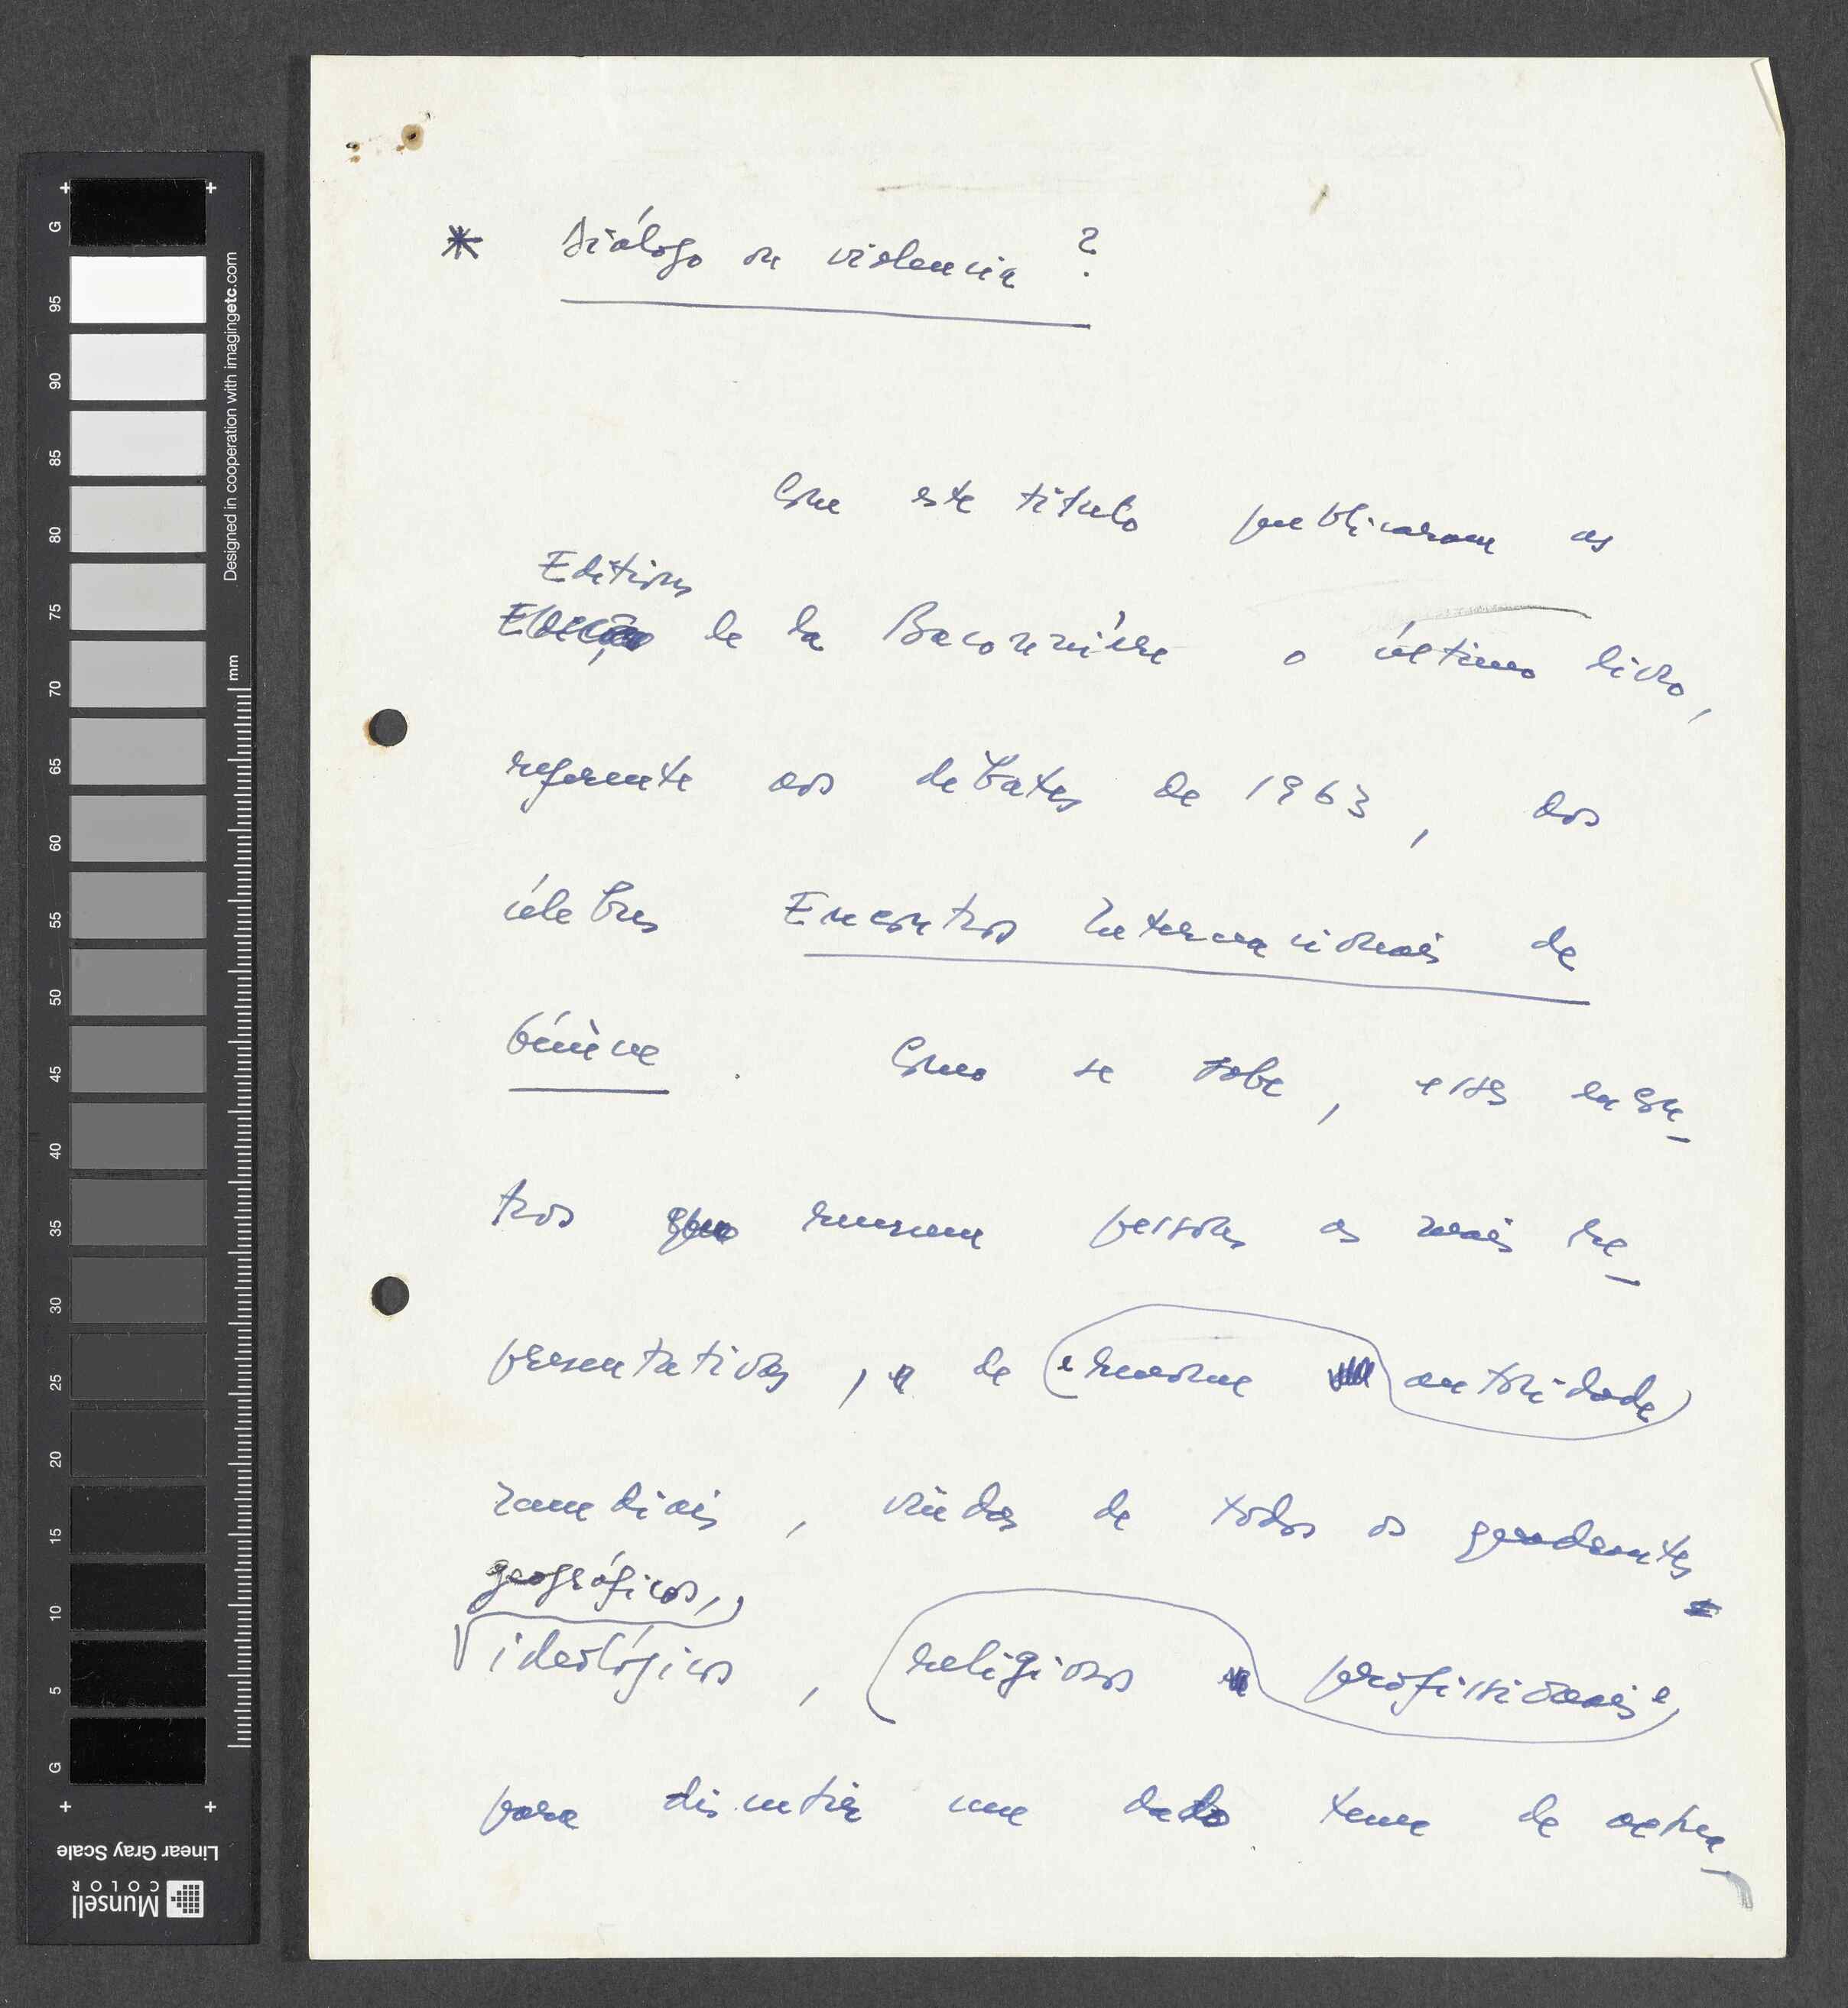 * Diálogo ou violencia?
Com este título publicaram as
Editions
de la Baconnière o último livro,
referente aos debates de 1963, dos
célebres Encontros Internacionais de
Génève. Como se sabe, esses encon-
tros reunem pessoas as mais re-
presentativas, e de enorme autoridade
mundiais, vindas de todos os quadrantes
geográficos,
ideológicos, religiosos profissionais,
para discutir um dado tema de actua-
G
95
90
85
80
75
70
65
60
55
50
45
40
35
30
25
20
15
10
5
G
mm
Designed in cooperation with imagingetc.com
Linear Gray Scale
Munsell
COLOR